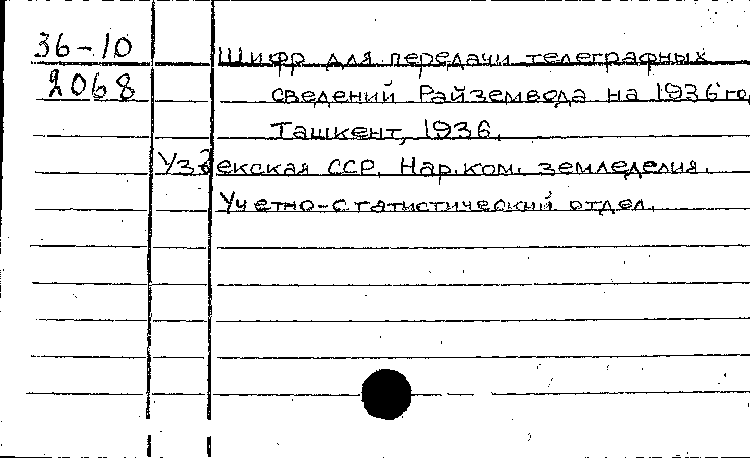 36-10
2068
Шифр для передачи телеграфных
сведений Райземвода на 1936 го
Ташкент, 1936.
Узбекская ССР. Нар.ком. земледелия.
Учетно-статистический отдел.